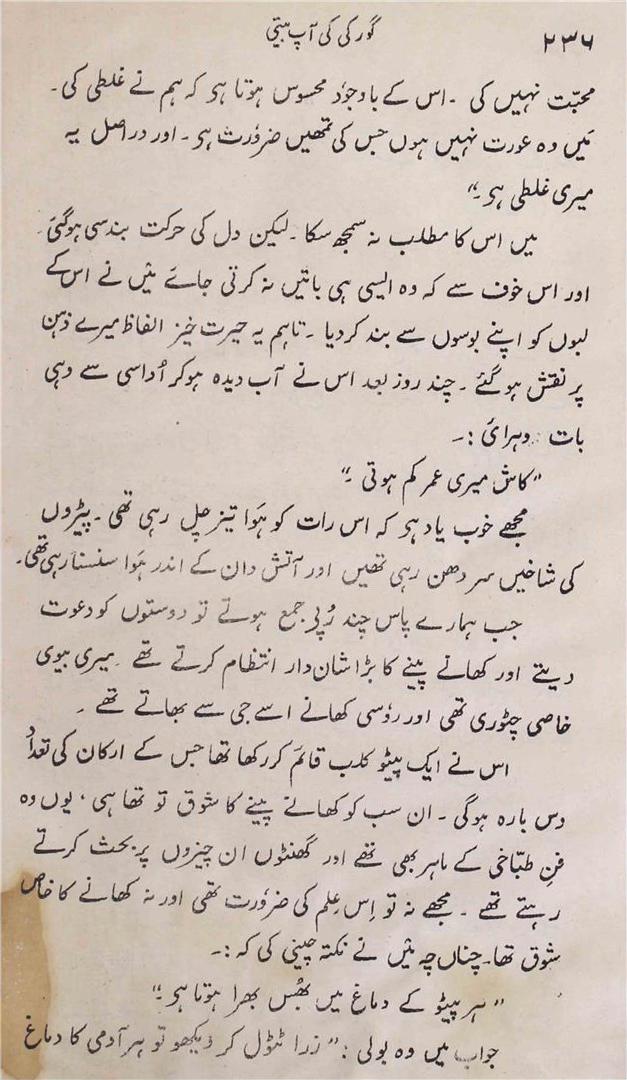 ۲۳۶
گورکی کی آپ بیتی
محبّت نہیں کی ۔ اس کے باوجود محسوس ہوتا ہی کہ ہم نے غلطی کی ۔
مَیں وہ عورت نہیں ہوں جس کی تمھیں ضرورت ہی ۔ اور دراصل یہ
میری غلطی ہی ۔"
میں اس کا مطلب نہ سمجھ سکا ۔ لیکن دل کی حرکت بند سی ہوگئی ۔
اور اس خوف سے کہ وہ ایسی ہی باتیں نہ کرتی جائے مَیں نے اس کے
لبوں کو اپنے بوسوں سے بند کردیا ۔ تاہم یہ حیرت خیز الفاظ میرے ذہن
پر نقش ہو گئے ۔ چند روز بعد اس نے آب دیدہ ہوکر اُداسی سے وہی
بات دہرائی :۔
"کاش میری عمر کم ہوتی ۔"
مجھے خوب یاد ہی کہ اس رات کو ہَوا تیز چل رہی تھی ۔ پیڑوں
کی شاخیں سر دھن رہی تھیں اور آتش دان کے اندر ہَوا سنسنا رہی تھی ۔
جب ہمارے پاس چند رُپی جمع ہوتے تو دوستوں کو دعوت
دیتے اور کھانے پینے کا بڑا شان دار انتظام کرتے تھے ۔ میری بیوی
خاصی چٹوری تھی اور روٗسی کھانے اسے جی سے بھاتے تھے ۔
اس نے ایک پیٹو کلب قائم کر رکھا تھا جس کے ارکان کی تعداد
دس بارہ ہوگی ۔ ان سب کو کھانے پینے کا شوق تو تھا ہی ، یوں وہ
فنِ طبّاخی کے ماہر بھی تھے اور گھنٹوں ان چیزوں پر بحث کرتے
رہتے تھے ۔ مجھے نہ تو اِس علِم کی ضروٗرت تھی اور نہ کھانے کا خاص
شوق تھا۔ چناں چہ مَیں نے نکتہ چینی کی کہ :۔
"ہر پیٹو کے دماغ میں بھُس بھرا ہوتا ہی ۔"
جواب میں وہ بولی : "ذرا ٹٹول کر دیکھو تو ہر آدمی کا دماغ